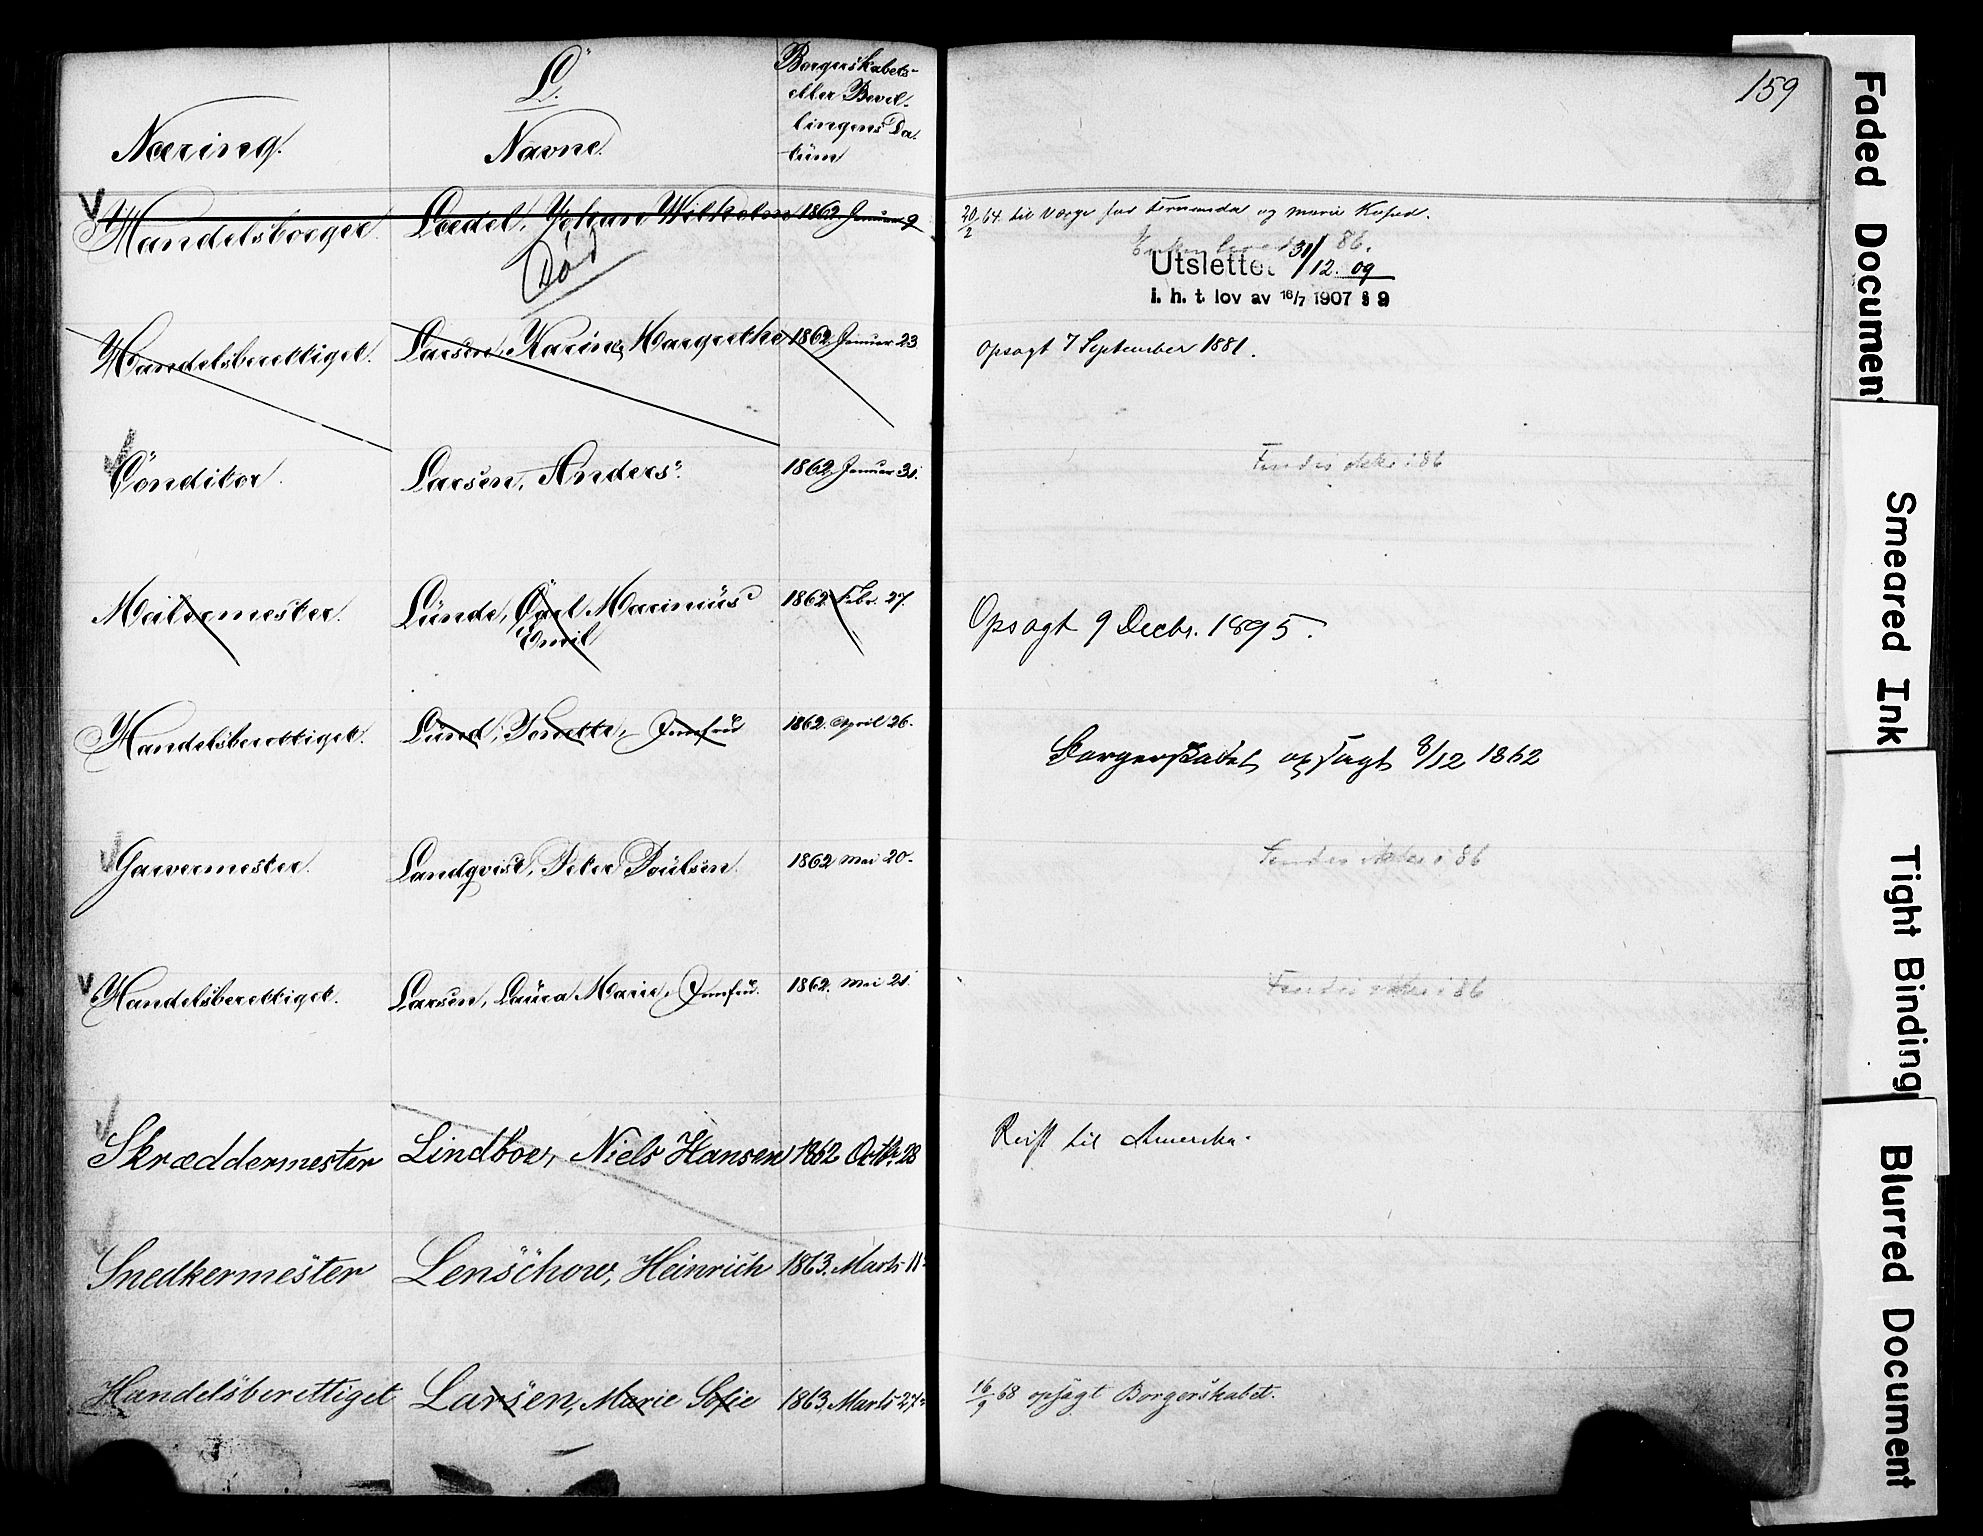 L.
Borgerskabets-
eller Bevil-
lingens Da-
tum
159
Næring.
Navne.
Handelsborger. Loedel, Johan Wilhelm 1862 Januar 9
20/2 64 til Værge for Fernanda og Marie
Død
86.
Utslettet 31/12. 09
i. h. t. lov av 16/7 1907 § 9
Handelsberettiget. Larsen, Karine Margrethe 1862 Januar 23
Opsagt 7 September 1881.
Conditor. Larsen, Anders. 1862 Januar 31.
Findes ikke i 86
Malermester. Lunde, Carl Marinius 1862 Febr. 27.
Emil
Opsagt 9 Decbr. 1895.
Handelsberettiget. Lund, Tonette, Jomfru 1862. April 26.
Borgerskabet opsagt 8/12 1862
Garvermester. Landqvist, Peter Poulsen. 1862 Mai 20.
Findes ikke i 86
Handelsberettiget. Larsen, Laura Marie, Jomfru. 1862. Mai 21.
Findes ikke i 86
Skræddermester Lindboe, Niels Hansen 1862 Octbr. 28
Reist til Amerika.
Snedkermester Lenschow, Heinrich 1863. Marts 11
Handelsberettiget Larsen, Marie Sofie 1863. Marts 27
16/9 68 opsagt Borgerskabet.
Faded Document
Smeared Ink
Tight Binding
Blurred Document